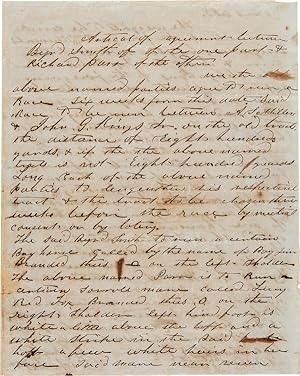 Artical of agreement between
Byrd Smith of of the one part &
Richard Parr of the other
we the
above named parties agree to run a
Race six weeks from this date Said
Race to be run between A. S. Miller
& John G. Kings Sr. on the old track
the distance of Eight hundred
yards & if the above named
track is not Eight hundred yards
Long Each of the above named
parties to designate his respective
track & the track to be chosen three
weeks before the race by mutual
consent or by lotery
The Said Byrd Smith to run a certain
Bay horse called by the name of Boy
Branded thus on the left Sholder
the above named Parr is to Run a
certain Sorrele mare called Fury
Red Fox Branded thus A on the
right Sholder left hind foot is
white a little above the hoff and a
white Stripe in the Said
hoff a few white heirs in her
face Said mare near seven